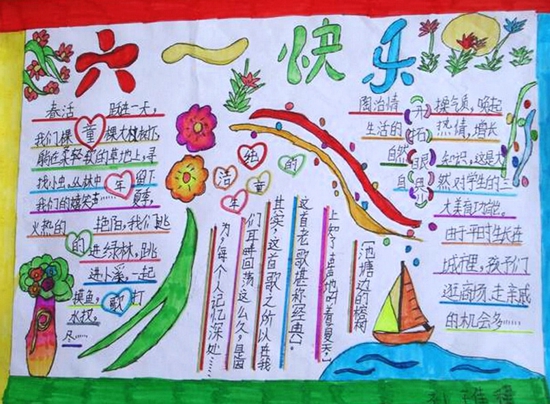 六一快乐
春活
我们棵 童 棵大树
躺在柔轻软的草地上,寻
找小虫.丛林中 年 留下
我们的嬉笑声…… 夏季,
火热的 艳阳,我们跳
的 进绿林,跳
进小溪,一起
摸鱼, 歌 打
水仗。
尽……
纯洁的
童年
池塘边的榕树
上,知了声声地叫着夏天
这首老歌堪称经典。
其实,这首歌之所以在我
们耳畔回荡这么久,是因
为,每个人记忆深处……
陶冶情 操气质,唤起
生活的 热情,增长
自然 知识,这是大
自 然对学生的三
大美育功能。
由于平时生长在
城市里,孩子们
逛商场、走亲戚
的机会多……
开拓眼